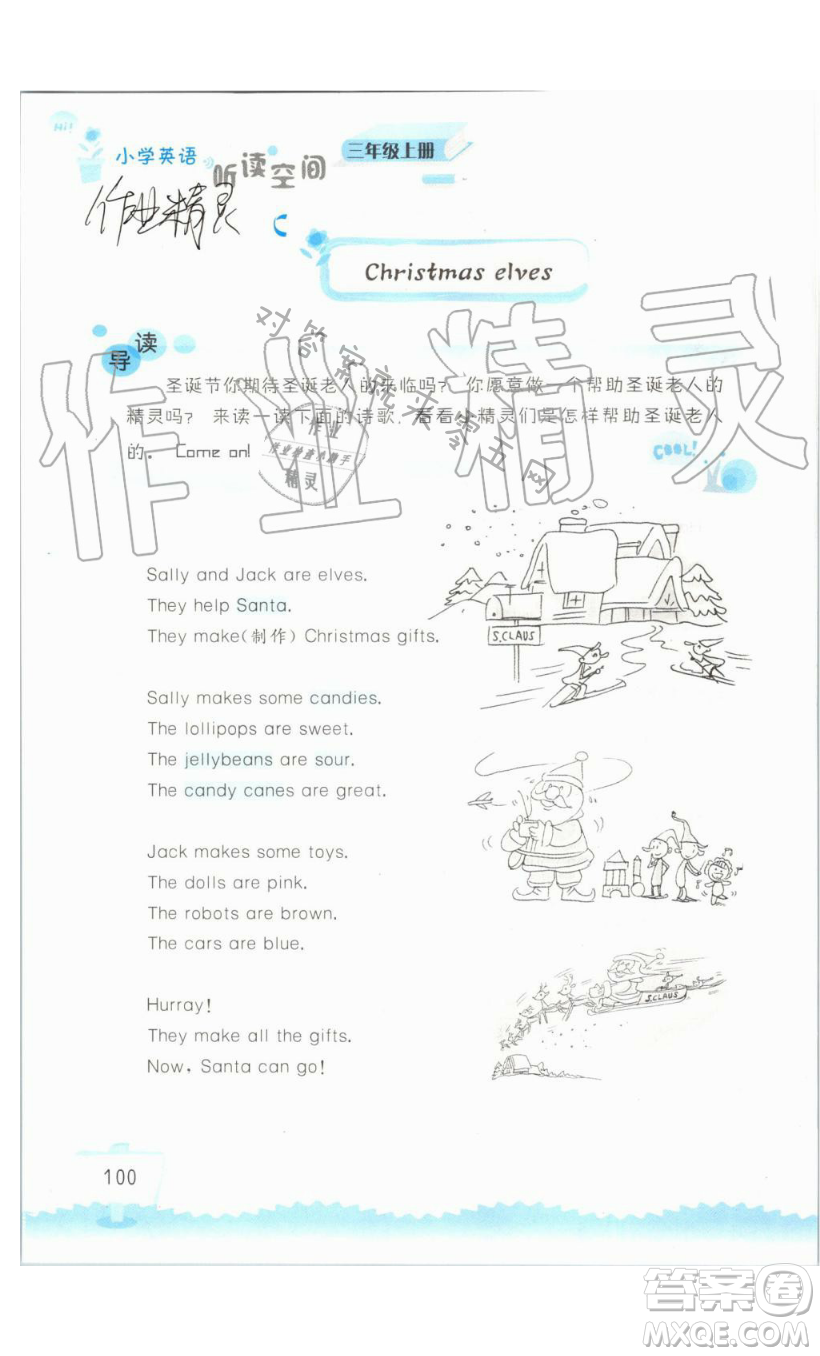 Hi!
小学英语
听读空间
三年级上册
作业精灵
C
Christmas elves
导读
圣诞节你期待圣诞老人的来临吗？你愿意做一个帮助圣诞老人的
精灵吗？来读一读下面的诗歌，看看小精灵们是怎样帮助圣诞老人
的。Come on!
COOL!
作业精灵
对答案就来零五网
作业
作业检查小助手
精灵
Sally and Jack are elves.
They help Santa.
They make(制作) Christmas gifts.
S.CLAUS
Sally makes some candies.
The lollipops are sweet.
The jellybeans are sour.
The candy canes are great.
Jack makes some toys.
The dolls are pink.
The robots are brown.
The cars are blue.
Hurray!
They make all the gifts.
Now, Santa can go!
S.CLAUS
100
答案圈
MXQE.COM